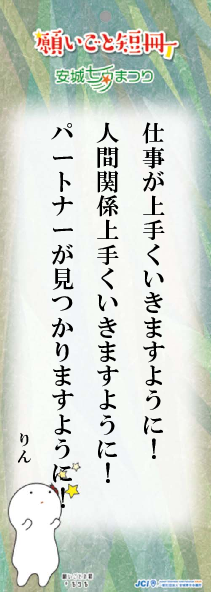 願いごと短冊
安城七夕まつり
仕事が上手くいきますように！
人間関係上手くいきますように！
パートナーが見つかりますように！
りん
願いごと短冊
JCI